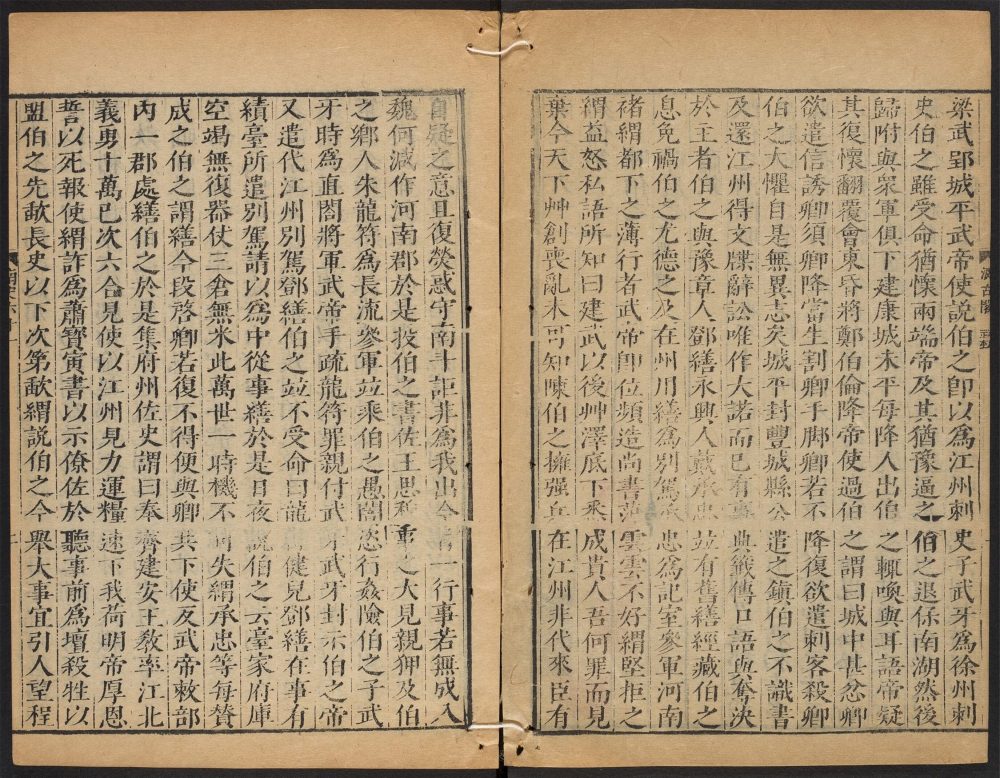 梁武郢城平武帝使說伯之卽以爲江州刺史子武牙爲徐州刺
史伯之雖受命猶懷兩端帝及其猶豫逼之伯之退保南湖然後
歸附與衆軍俱下建康城未平每降人出伯之輒喚與耳語帝疑
其復懷翻覆會東昏將鄭伯倫降帝使過伯之謂曰城中甚忿卿
欲遣信誘卿須卿降當生割卿手脚卿若不降復欲遣刺客殺卿
伯之大懼自是無異志矣城平封豐城縣公遣之鎭伯之不識書
及還江州得文牒辭訟唯作大諾而已有事典籤傳口語與奪決
於主者伯之與豫章人鄧繕永興人戴承忠並有舊繕經藏伯之
息免禍伯之尤德之及在州用繕爲別駕承忠爲記室參軍河南
褚緭都下之薄行者武帝卽位頻造尚書范雲雲不好緭堅拒之
緭益怒私語所知曰建武以後艸澤底下悉成貴人吾何罪而見
棄今天下艸創喪亂未可知陳伯之擁强兵在江州非代來臣有
自疑之意且復熒惑守南斗詎非爲我出今者一行事若無成入
魏何減作河南郡於是投伯之書佐王思穆重之大見親狎及伯
之鄉人朱龍符爲長流參軍並乘伯之愚闇恣行姦險伯之子武
牙時爲直閤將軍武帝手疏龍符罪親付武牙武牙封示伯之帝
又遣代江州別駕鄧繕伯之並不受命曰龍符健兒鄧繕在事有
績臺所遣別駕請以爲中從事繕於是日夜說伯之云臺家府庫
空竭無復器仗三倉無米此萬世一時機不可失緭承忠等每贊
成之伯之謂繕今段啓卿若復不得便與卿共下使反武帝敕部
內一郡處繕伯之於是集府州佐史謂曰奉齊建安王敎率江北
義勇十萬已次六合見使以江州見力運糧速下我荷明帝厚恩
誓以死報使緭詐爲蕭寶寅書以示僚佐於聽事前爲壇殺牲以
盟伯之先歃長史以下次第歃緭說伯之今舉大事宜引人望程
汲古閣